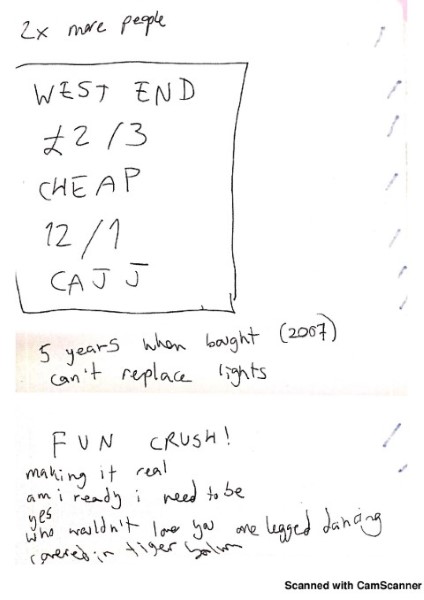 2x more people
WEST END
£2/3
CHEAP
12/1
CAJJ
5 years when bought (2007)
can't replace lights
FUN CRUSH!
making it real
am i ready i need to be
yes
who wouldn't love you one legged dancing
covered in tiger balm
Scanned with CamScanner